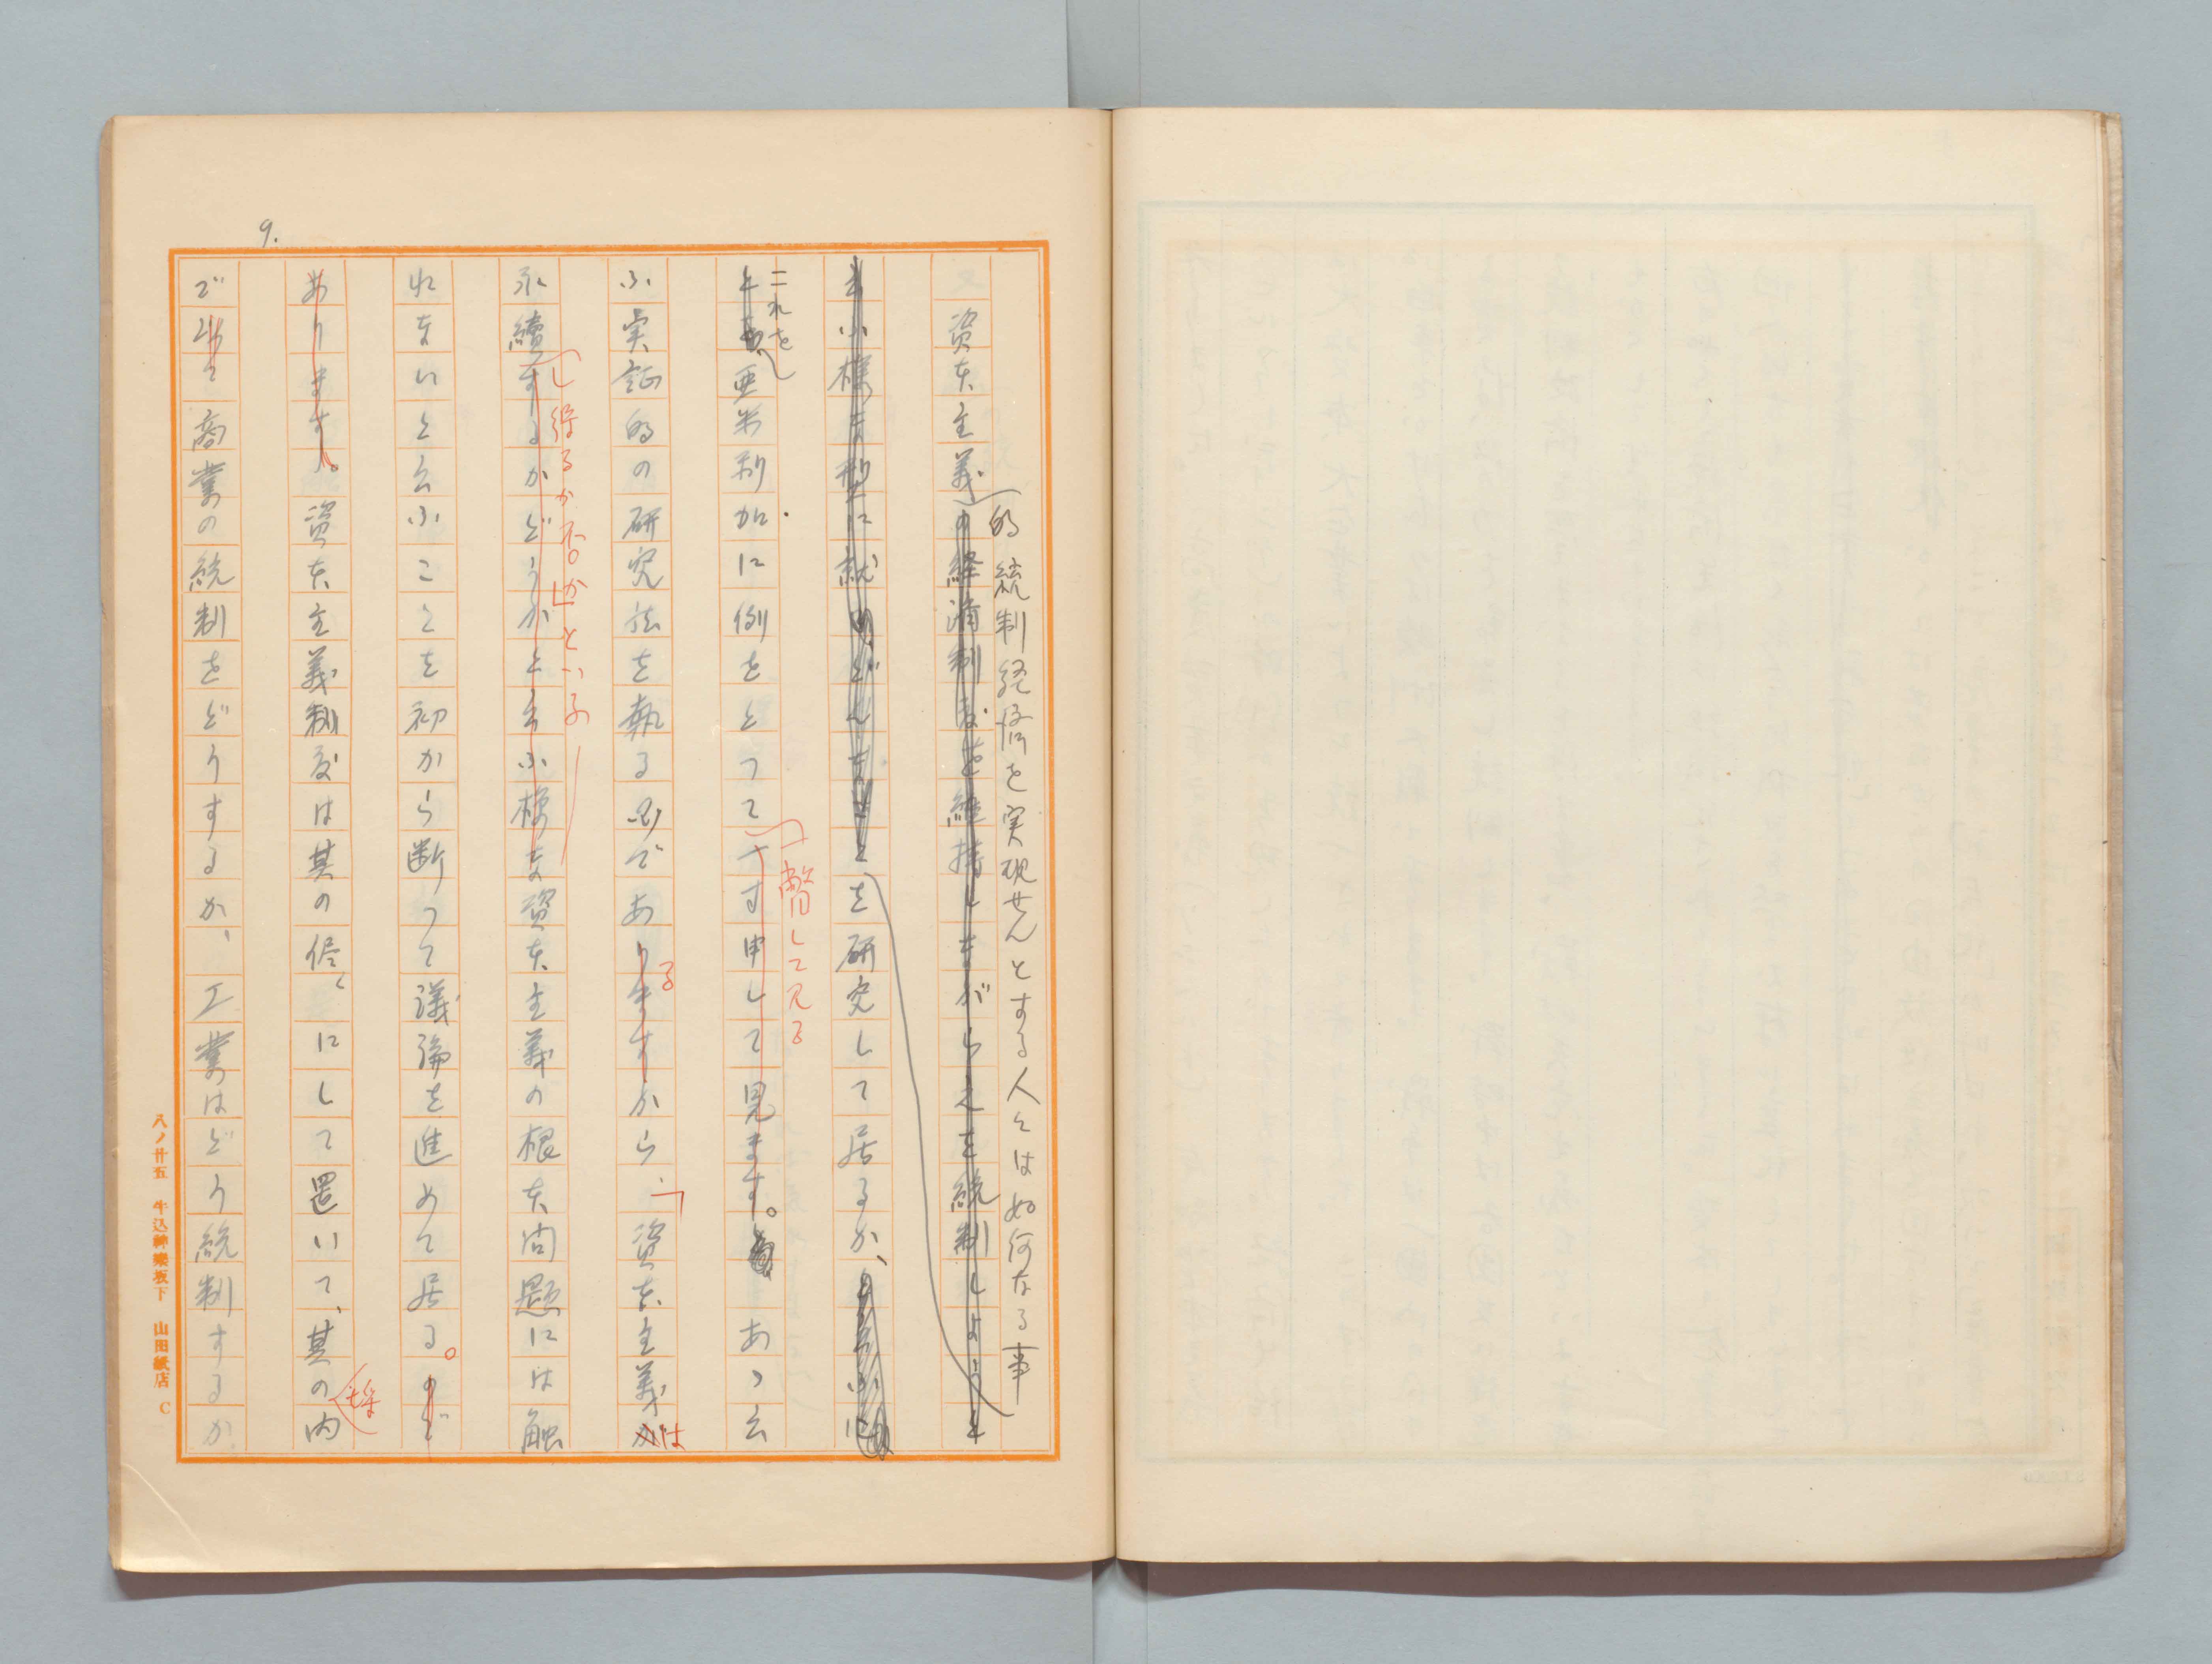 9.
的統制経済を実現せんとする人々は如何なる事
資本主義の経済制度を維持しながら之を統制しようと
云ふ様な形に就てどんなことを研究して居るか、
これを
亜米利加に例をとつて一寸申して見ます。あゝ云
「一瞥して見る
ふ実証的の研究法を執る国でありますから、資本主義が
る
は
永續するかどうかと云ふ様な資本主義の根本問題には触
し得るか否か」といふ
れないと云ふことを初から断つて議論を進めて居る。ので
あります。資本主義制度は其の侭にして置いて、其の内
で商業の統制をどうするか、工業はどう統制するか
八ノ廿五 牛込神楽坂下 山田紙店 C